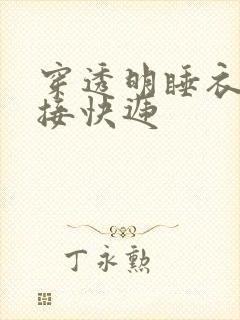 穿透明睡衣
接快递
丁永勲